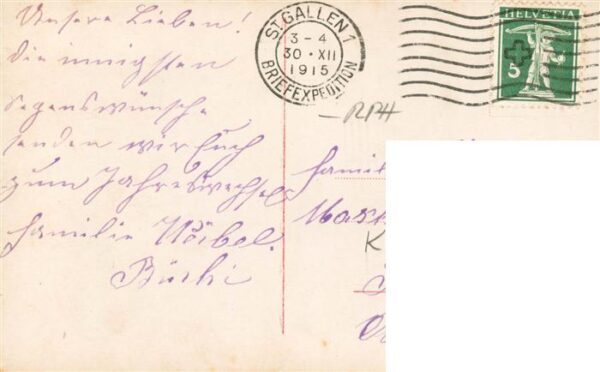 Unsere Lieben!
die innigsten
Segenswünsche
senden wir Euch
zum Jahreswechsel
Familie
ST. GALLEN 1
3-4
30·XII
1915
BRIEFEXPEDITION
HELVETIA
5
RPH
Famil
K